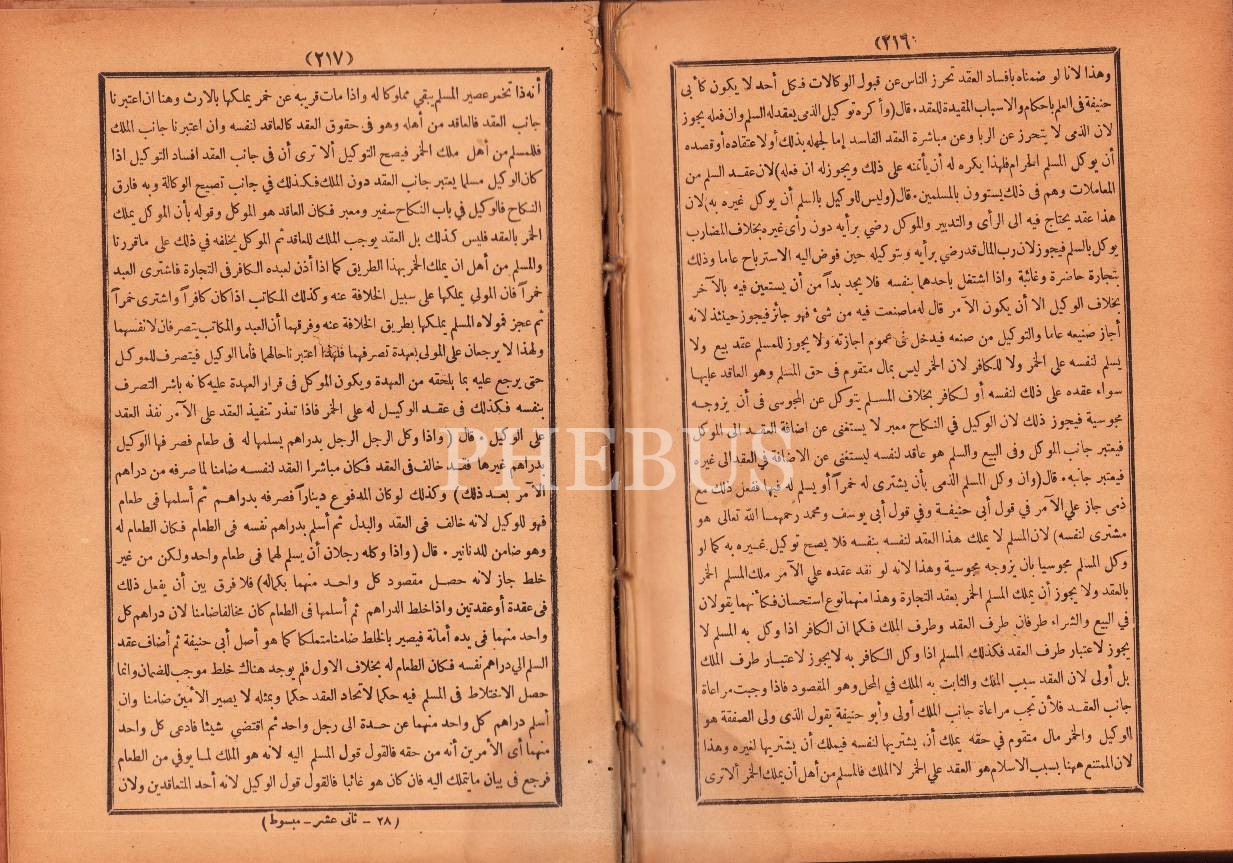 (٢١٦)
وهذا لانا لو ضمناه بافساد العقد تحرز الناس عن قبول الوكالات فكل أحد لا يكون كأبي
حنيفة في العلم باحكام والاسباب المقيدة للعقد . قال (وأكره توكيل الذمي بعقد له السلم وان فعله يجوز
لان الذمى لا يتحرز عن الربا وعن مباشرة العقد الفاسد إما لجهله بذلك أو لاعتقاده أو قصده
أن يوكل المسلم الحرام فلهذا يكره له أن يأتمنه على ذلك ويجوز له ان فعله) لان عقد السلم من
المعاملات وهم فى ذلك يستوون بالمسلمين . قال (وليس للوكيل بالسلم أن يوكل غيره به) لان
هذا عقد يحتاج فيه الى الرأى والتدبير والموكل رضي برأيه دون رأى غيره بخلاف المضارب
يوكل بالسلم فيجوز لان رب المال قد رضي برأيه وبتوكيله حين فوض اليه الاسترباح عاما وذلك
بتجارة حاضرة وغائبة واذا اشتغل باحدهما بنفسه فلا يجد بداً من أن يستعين فيه بالآخر
بخلاف الوكيل الا أن يكون الآمر قال له ما صنعت فيه من شئ فهو جائز فيجوز حينئذ لانه
أجاز صنيعه عاما والتوكيل من صنعه فيدخل فى عموم اجازته ولا يجوز للمسلم عقد بيع ولا
يسلم لنفسه على الخمر ولا للكافر لان الخمر ليس بمال متقوم فى حق المسلم وهو العاقد عليها
سواء عقده على ذلك لنفسه أو لكافر بخلاف المسلم يتوكل عن المجوسى فى أن يزوجه
مجوسية فيجوز ذلك لان الوكيل في النكاح معبر لا يستغنى عن اضافة العقد الى الموكل
فيعتبر جانب الموكل وفى البيع والسلم هو عاقد لنفسه ليستغنى عن الاضافة في العقد الى غيره
فيعتبر جانبه . قال (وان وكل المسلم الذمى بأن يشترى له خمراً أو يسلم له فيها ففعل ذلك مع
ذمى جاز علي الآمر في قول أبى حنيفة وفي قول أبى يوسف ومحمد رحمهما الله تعالى هو
مشترى لنفسه) لان المسلم لا يملك هذا العقد لنفسه بنفسه فلا يصح توكيل غيره به كما لو
وكل المسلم مجوسيا بان يزوجه مجوسية وهذا لانه لو نفد عقده علي الآمر ملك المسلم الخمر
بالعقد ولا يجوز أن يملك المسلم الخمر بعقد التجارة وهذا منهما نوع استحسان فكأنهما يقولان
في البيع والشراء طرفان طرف العقد وطرف الملك فكما ان الكافر اذا وكل به المسلم لا
يجوز لاعتبار طرف العقد فكذلك المسلم اذا وكل الكافر به لا يجوز لاعتبار طرف الملك
بل أولى لان العقد سبب الملك والثابت به الملك في المحل وهو المقصود فاذا وجبت مراعاة
جانب العقد فلأن تجب مراعاة جانب الملك أولى وأبو حنيفة يقول الذى ولى الصفقة هو
الوكيل والخمر مال متقوم في حقه يملك أن يشتريها لنفسه فيملك أن يشتريها لغيره وهذا
لان الممتنع ههنا بسبب الاسلام هو العقد علي الخمر لا الملك فالمسلم من أهل أن يملك الخمر ألا ترى
(٢١٧)
أنه اذا تخمر عصير المسلم يبقي مملوكا له واذا مات قريبه عن خمر يملكها بالارث وهنا ان اعتبرنا
جانب العقد فالعاقد من أهله وهو فى حقوق العقد كالعاقد لنفسه وان اعتبرنا جانب الملك
فللمسلم من أهل ملك الخمر فيصح التوكيل ألا ترى أن فى جانب العقد افساد التوكيل اذا
كان الوكيل مسلما يعتبر جانب العقد دون الملك فكذلك في جانب تصحيح الوكالة وبه فارق
النكاح فالوكيل في باب النكاح سفير ومعبر فكان العاقد هو الموكل وقوله بأن الموكل يملك
الخمر بالعقد فليس كذلك بل العقد يوجب الملك للعاقد ثم الموكل يخلفه في ذلك على ما قررنا
والمسلم من أهل ان يملك الخمر بهذا الطريق كما اذا أذن لعبده الكافر فى التجارة فاشترى العبد
خمراً فان المولي يملكها على سبيل الخلافة عنه وكذلك المكاتب اذا كان كافراً واشترى خمراً
ثم عجز فمولاه المسلم يملكها بطريق الخلافة عنه وفرقهما أن العبد والمكاتب يتصرفان لانفسهما
ولهذا لا يرجعان على المولى بعهدة تصرفهما فلهذا اعتبرنا حالهما فأما الوكيل فيتصرف للموكل
حتى يرجع عليه بما يلحقه من العهدة ويكون الموكل فى قرار العهدة عليه كانه باشر التصرف
بنفسه فكذلك فى عقد الوكيل له على الخمر فاذا تعذر تنفيذ العقد علي الآمر نفذ العقد
علي الوكيل . قال (واذا وكل الرجل الرجل بدراهم يسلمها له فى طعام فصرفها الوكيل
بدراهم غيرها فقد خالف فى العقد فكان مباشرا العقد لنفسه ضامنا لما صرفه من دراهم
الآمر بعد ذلك) وكذلك لو كان المدفوع ديناراً فصرفه بدراهم ثم أسلمها فى طعام
فهو للوكيل لانه خالف فى العقد والبدل ثم أسلم بدراهم نفسه فى الطعام فكان الطعام له
وهو ضامن للدنانير . قال (واذا وكله رجلان أن يسلم لهما فى طعام واحد ولكن من غير
خلط جاز لانه حصل مقصود كل واحد منهما بكماله) فلا فرق بين أن يفعل ذلك
فى عقدة أو عقدتين واذا خلط الدراهم ثم أسلمها فى الطعام كان مخالفا ضامنا لان دراهم كل
واحد منهما فى يده أمانة فيصير بالخلط ضامنا متملكا كما هو أصل أبى حنيفة ثم أضاف عقد
السلم الى دراهم نفسه فكان الطعام له بخلاف الاول فلم يوجد هناك خلط موجب للضمان وانما
حصل الاختلاط فى المسلم فيه حكما لاتحاد العقد حكما وبمثله لا يصير الأمين ضامنا وان
أسلم دراهم كل واحد منهما عن حدة الى رجل واحد ثم اقتضي شيئا فادعى كل واحد
منهما أى الأمرين أنه من حقه فالقول قول المسلم اليه لانه هو الملك لما يوفي من الطعام
فرجع فى بيان ما يتملك اليه فان كان هو غائبا فالقول قول الوكيل لانه أحد المتعاقدين ولان
(٢٨ - ثانى عشر - مبسوط)
PHEBUS